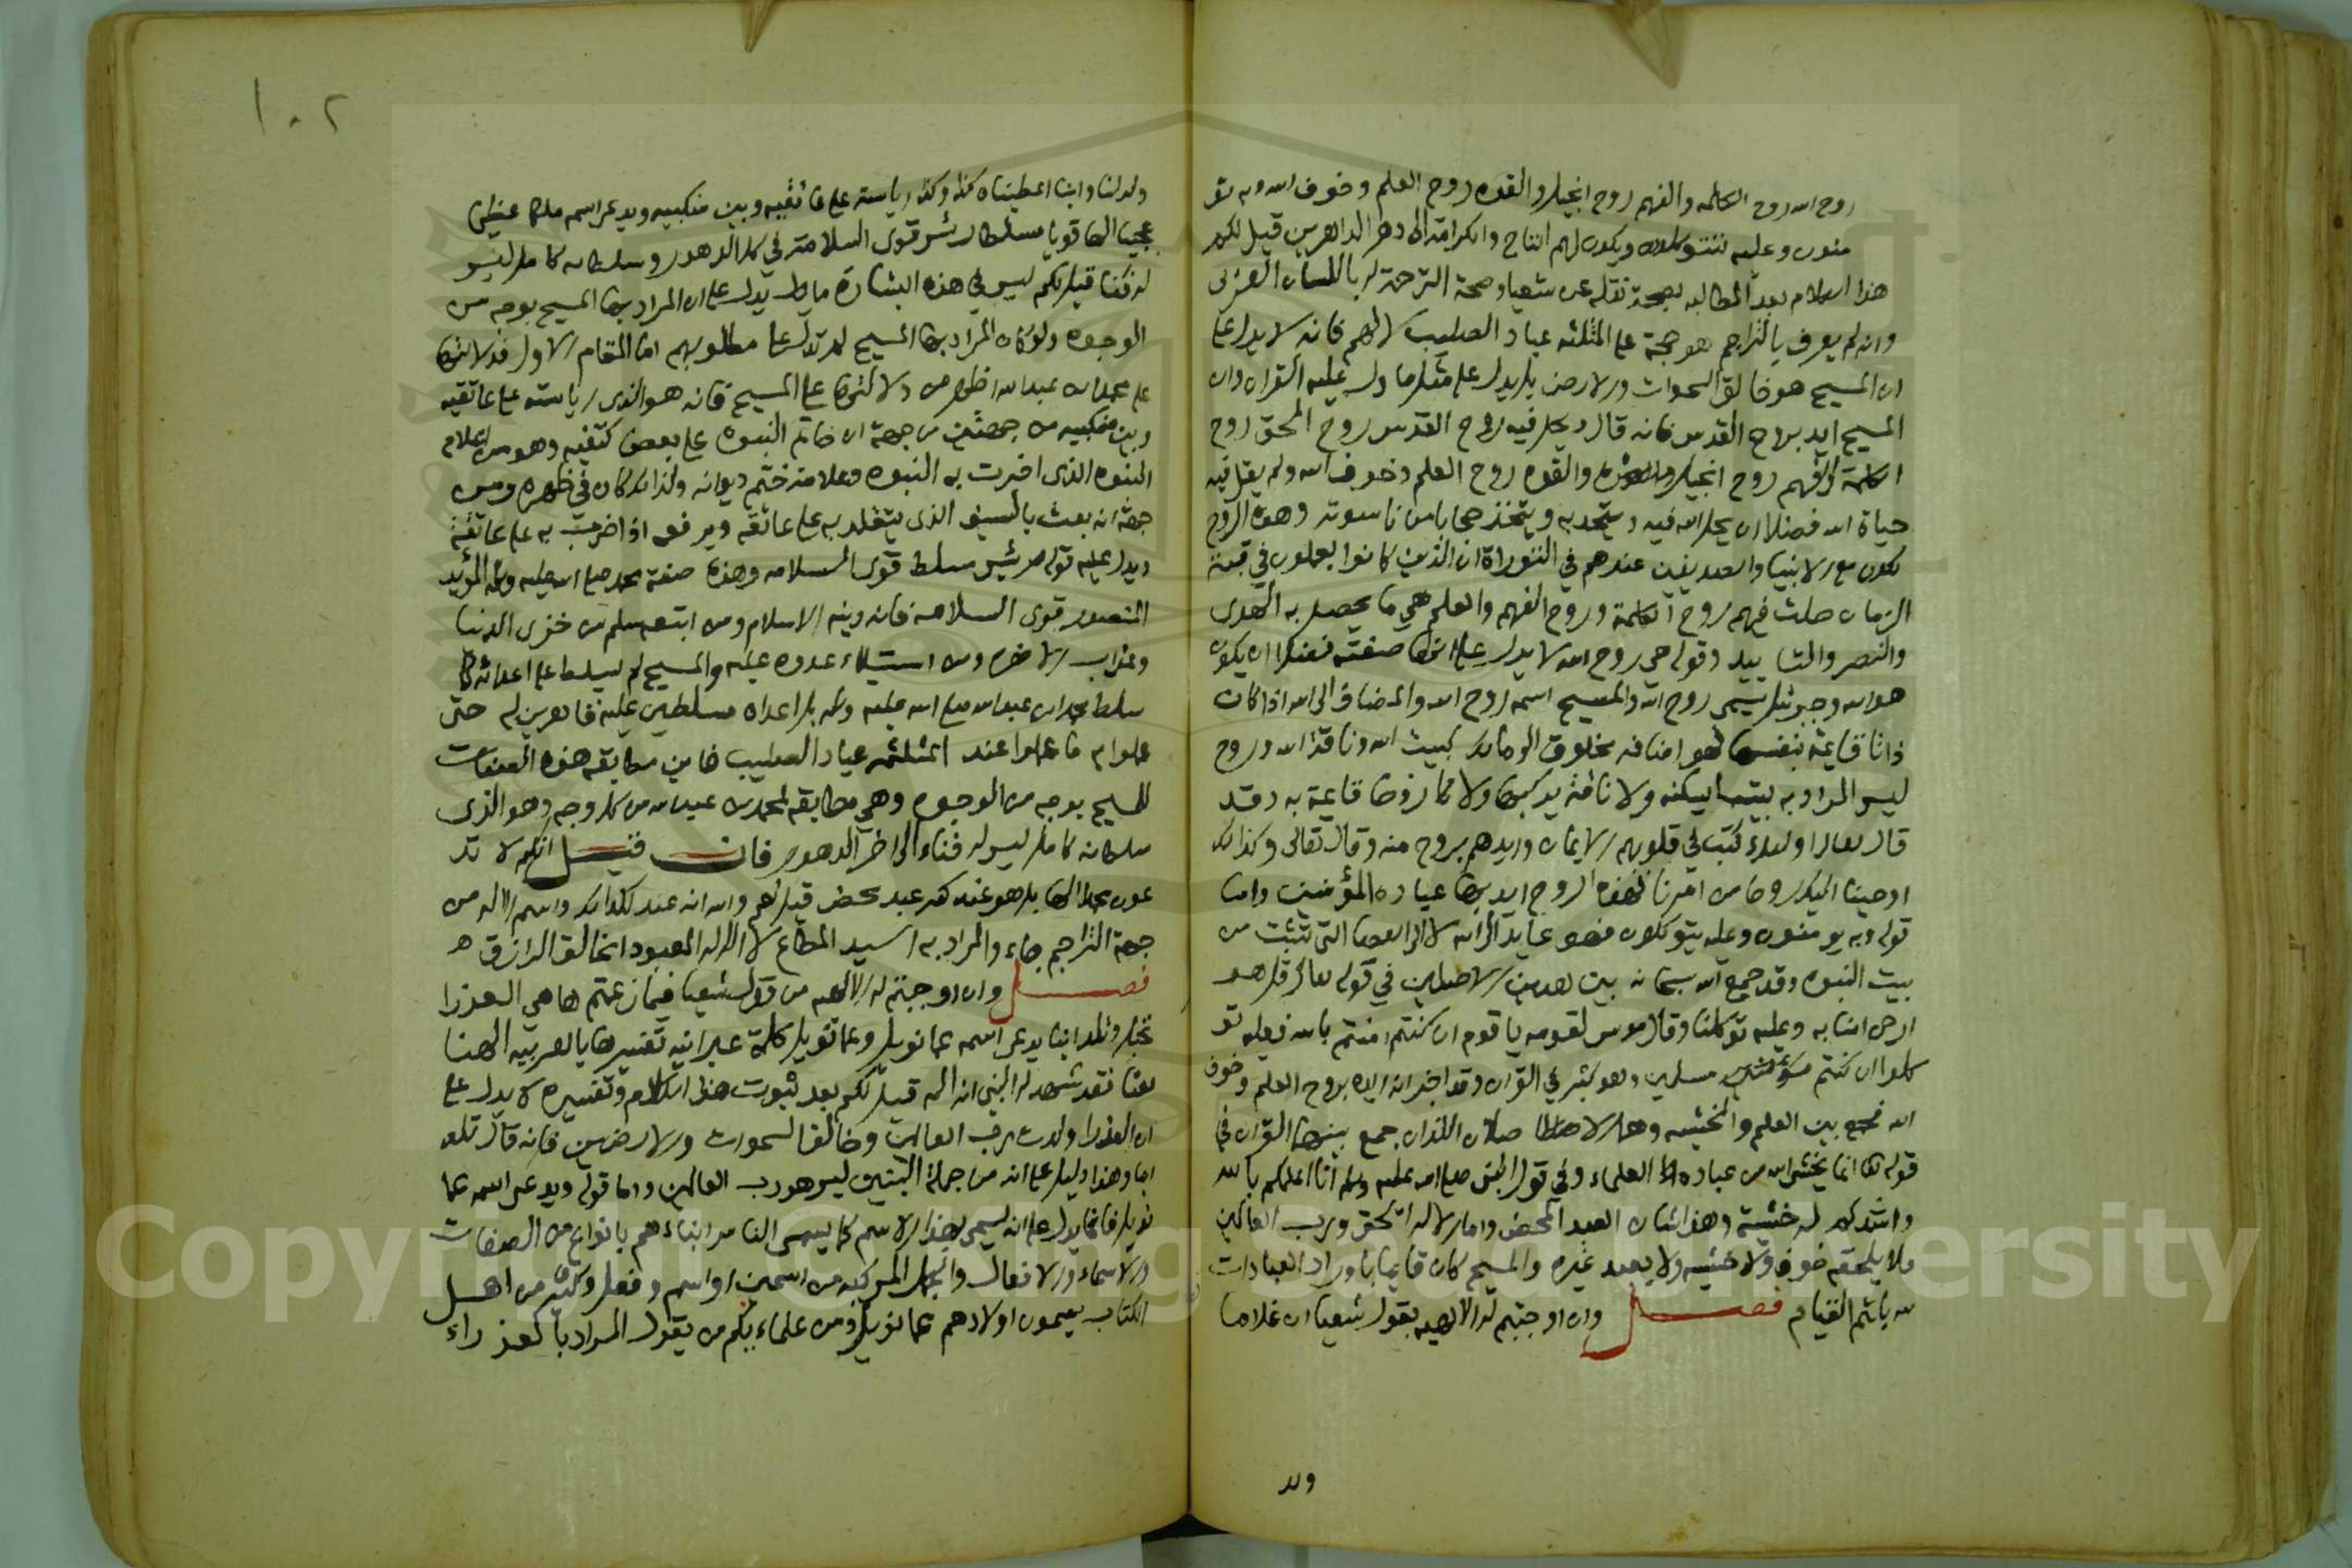 روح الله روح الكلمه والفهم روح الحيل والقوه روح العلم وخوف الله وبه تؤ
منون وعليه تتوكلون ويكون لهم التاج والكرامة الى دهر الداهرين قيل لكم
هذا الكلام بعد المطالبه بصحة نقله عن شعيا وصحة الترجمة له باللسان العربي
وانه لم يعرف بالتراجم هو حجة على المثلثه عباد الصليب لا لهم فانه لا يدل على
ان المسيح هو خالق السموات والارض بل يدل على مثل ما دل عليه القران وان
المسيح ايد بروح القدس فانه قال ويحل فيه روح القدس روح الحق روح
الكلمة والفهم روح الحيل والقوه روح العلم وخوف الله ولم يقل فيه
حياة الله فضلا ان يحل الله فيه ويتحد به ويتخذ حجابا من ناسوته وهذه الروح
تكون مع الانبيا والصديقين عندهم في التوراة ان الذين كانوا يعملون في قبة
الزمان حلت فيهم روح الحكمة وروح الفهم والعلم هي ما يحصل به الهدى
والنصر والتاييد وقوله هي روح الله لا يدل على انها صفته فضلا ان يكون
هو الله وجبرئيل يسمى روح الله والمسيح اسمه روح الله والمضاف الى الله اذا كان
ذاتا قايمة بنفسها فهو اضافه مخلوق الى خالق كبيت الله وناقة الله وروح الله
ليس المراد به بيت يسكنه ولا ناقة يركبها ولا روحا قايمة به وقد
قال تعالى اولئك كتب في قلوبهم الايمان وايدهم بروح منه وقال تعالى وكذلك
اوحينا اليك روحا من امرنا فهذه الروح ايد بها عباده المؤمنين واما
قوله وبه يومنون وعليه يتوكلون فهو عايد الى الله لا الى العصا التي تنبت من
بيت النبوه وقد جمع الله سبحانه بين هذين الاصلين في قوله تعالى قل هو
الرحمن امنا به وعليه توكلنا وقال موسى لقومه يا قوم ان كنتم امنتم بالله فعليه تو
كلوا ان كنتم مسلمين وهو كثير في القران وقد اخبر انه ايده بروح العلم وخوف
الله فجمع بين العلم والخشيه وهما الاصلان اللذان جمع بينهما القران في
قوله تعالى انما يخشى الله من عباده العلماء وفي قول النبي صلى الله عليه وسلم انا اعلمكم بالله
واشدكم له خشية وهذا شان العبد المحض واما الاله الحق ورب العالمين
فلا يلحقه خوف ولا خشيه ولا يعبد غيره والمسيح كان قايما باوراد العبادات
لله باتم القيام فصل وان اوجبتم له الالهيه بقول شعيا ان غلاما
ولد
١٠٢
ولد لنا واننا اعطيناه كذا وكذا رياسته على عاتقيه وبين منكبيه ويدعى اسمه ملكا عظيما
عجيبا الها قويا مسلطا رئيس قوى السلامة في كل الدهور وسلطانه كامل ليس
له فناء قيل لكم ليس في هذه البشارة ما يدل على ان المراد بها المسيح بوجه من
الوجوه ولو كان المراد بها المسيح لم تدل على مطلوبهم اما المقام الاول فدلالتها
على محمد بن عبد الله اظهر من دلالتها على المسيح فانه هو الذي رياسته على عاتقيه
وبين منكبيه من جهتين من جهة ان خاتم النبوه على بعض كتفيه وهو من اعلام
النبوه الذي اخبرت به النبوه وعلامة ختم ديوانه ولذلك كان في ظهره ومن
جهة انه بعث بالسيف الذي يتقلد به على عاتقه ويرفعه اذا ضرب به على عاتقه
ويدل عليه قوله رئيس مسلط قوى السلامه وهذه صفة محمد صلى الله عليه وسلم المؤيد
المنصور قوى السلامه فانه دينه الاسلام ومن اتبعه سلم من خزى الدنيا
وعذاب الاخره ومن استيلاء عدوه عليه والمسيح لم يسلط على اعدائه كما
سلط محمد بن عبد الله صلى الله عليه وسلم بل اعداه مسلطين عليه قاهرين له حتى
عملوا به ما عملوا عند المثلثه عباد الصليب فاين مطابقه هذه الصفات
للمسيح بوجه من الوجوه وهي مطابقه لمحمد بن عبد الله من كل وجه وهو الذي
سلطانه كامل ليس له فناء الى اخر الدهور فان قيل انكم لا تد
عون محمدا الها بل هو عندكم عبد محض قيل نعم والله انه عبد لله واسم الاله من
جهة التراجم جاء والمراد به السيد المطاع لا الاله المعبود الخالق الرازق
فصل وان اوجبتم له الالهيه من قول شعيا فيما زعمتم ها هي العذرا
تحبل وتلد ابنا يدعى اسمه عمانويل وعمانويل كلمة عبرانيه تفسيرها بالعربيه الهنا
معنا فقد شهد له النبي انه اله قيل لكم بعد ثبوت هذا الكلام وتفسيره لا يدل على
ان العذرا ولدت رب العالمين وخالق السموات والارضين فانه قال تلد
ابنا وهذا دليل على انه من جملة البنين ليس هو رب العالمين واما قوله ويدعى اسمه عما
نويل فانما يدل على انه يسمى بهذا الاسم كما يسمى الناس ابناءهم بانواع من الصفات
والاسماء والافعال والجمل المركبه من اسمين او اسم وفعل وكثير من اهل
الكتاب يسمون اولادهم عمانويل ومن علمائكم من يقول المراد بالعذراء
Copyright © King Saud University